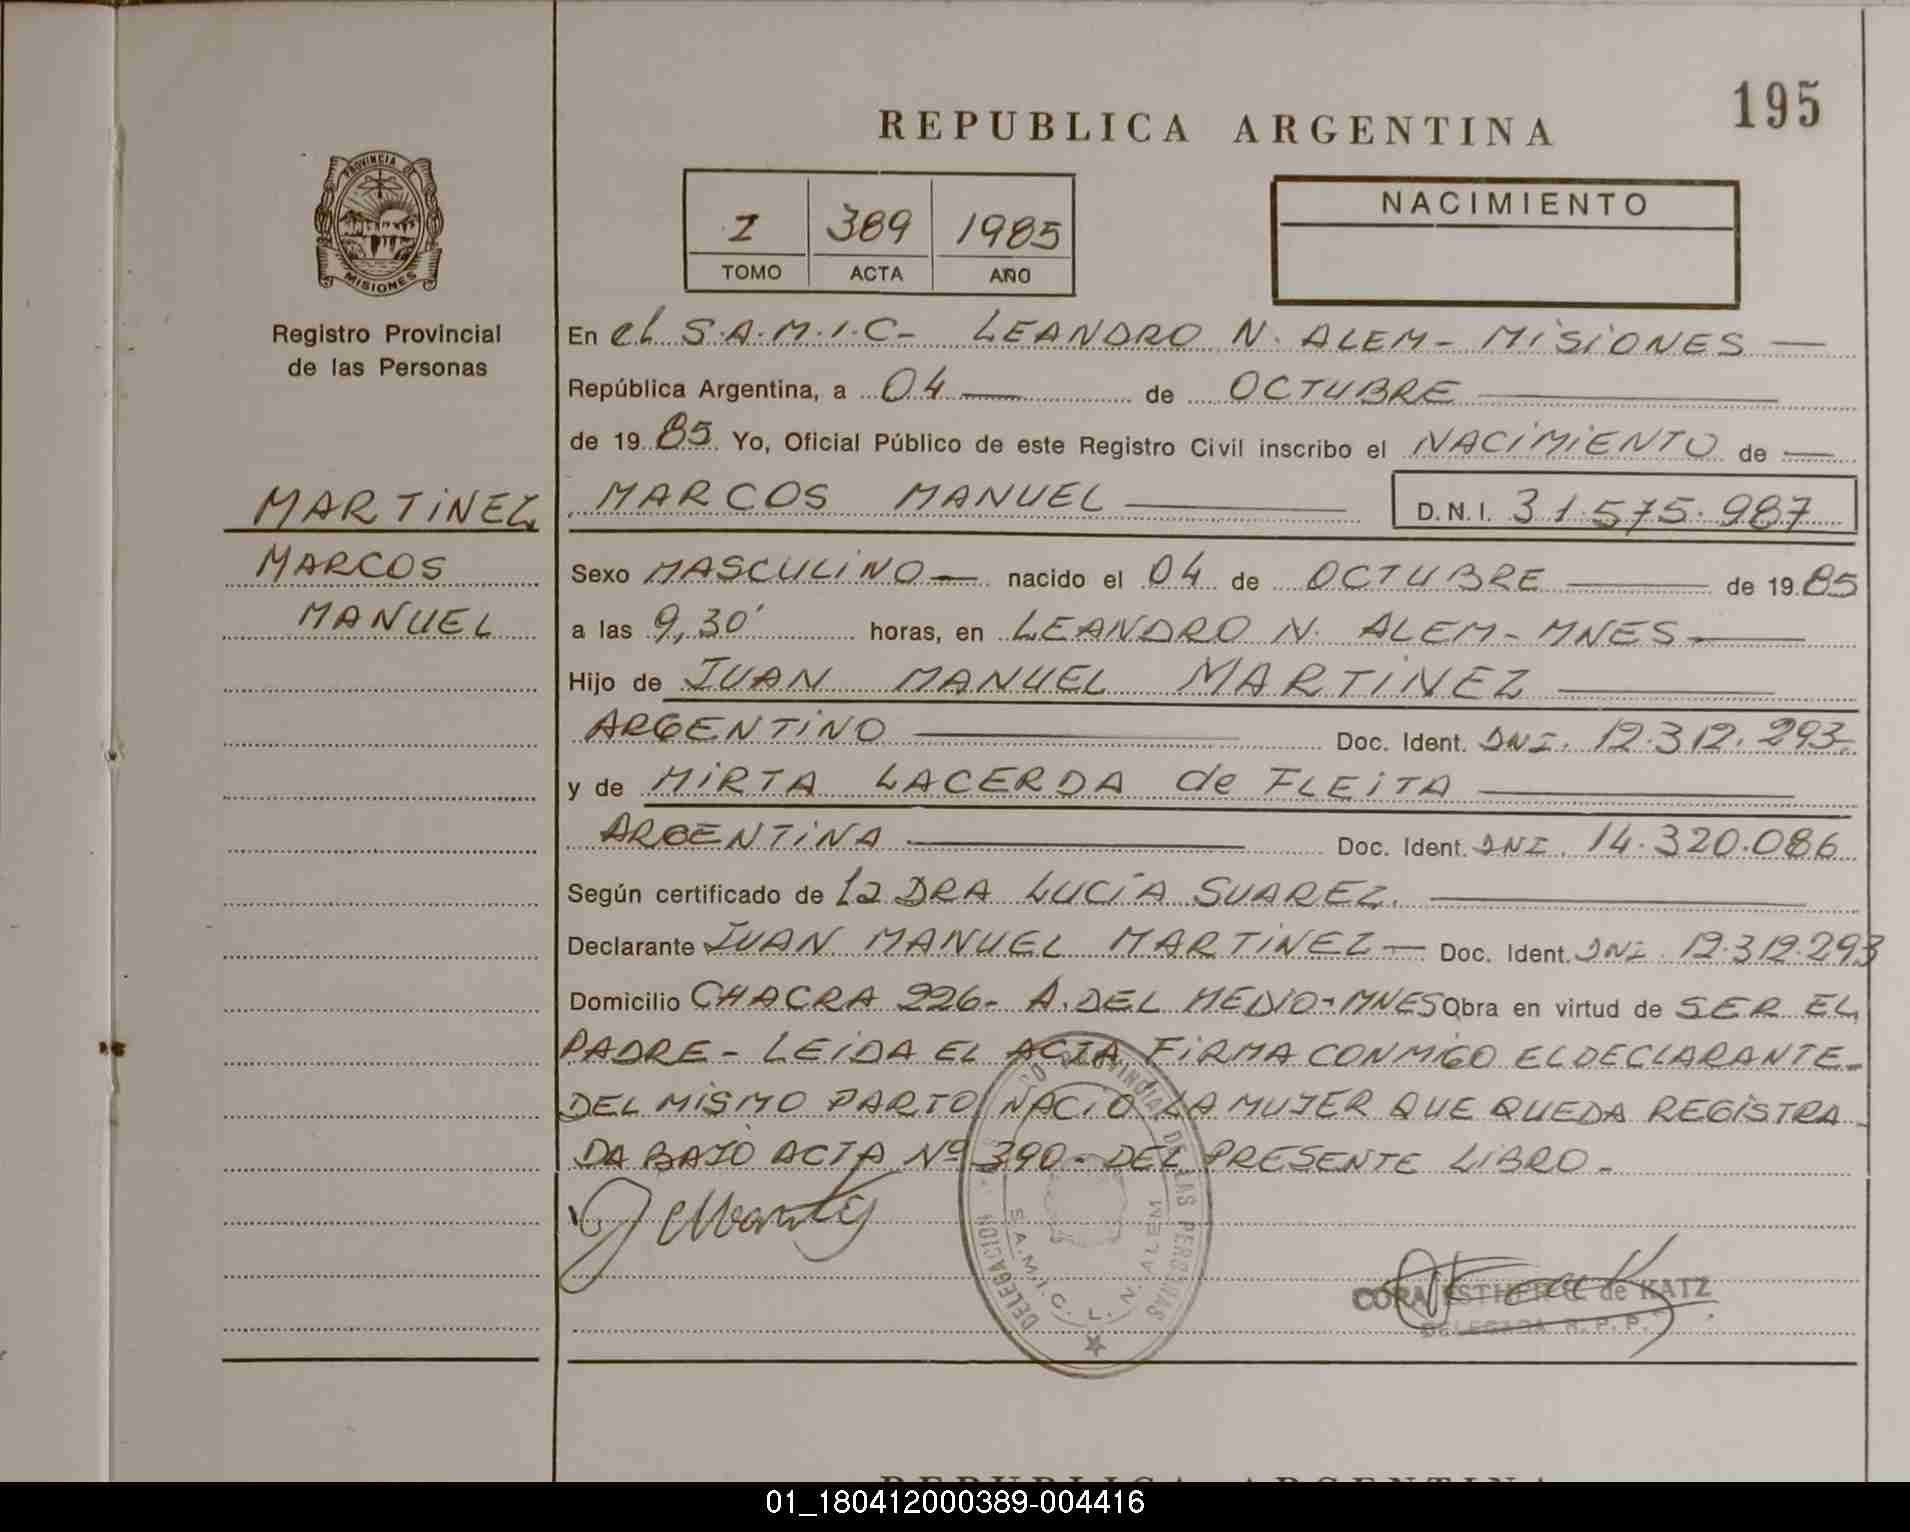 195
REPUBLICA ARGENTINA
PROVINCIA DE MISIONES
Registro Provincial
de las Personas
I 389 1985
TOMO ACTA AÑO
NACIMIENTO
En el S.A.M.I.C- LEANDRO N. ALEM- MISIONES —
República Argentina, a 04 — de OCTUBRE —
de 1985 Yo, Oficial Público de este Registro Civil inscribo el NACIMIENTO de —
MARTINEZ
MARCOS MANUEL — D.N.I. 31.575.987
MARCOS
Sexo MASCULINO — nacido el 04 de OCTUBRE — de 1985
MANUEL
a las 9,30' horas, en LEANDRO N. ALEM - MNES —
Hijo de JUAN MANUEL MARTINEZ —
ARGENTINO — Doc. Ident. DNI. 12.312.293-
y de MIRTA LACERDA de FLEITA —
ARGENTINA — Doc. Ident. DNI. 14.320.086
Según certificado de la DRA LUCÍA SUAREZ. —
Declarante JUAN MANUEL MARTINEZ — Doc. Ident. DNI 12.312.293
Domicilio CHACRA 226- A. DEL MEDIO-MNES Obra en virtud de SER EL
PADRE - LEIDA EL ACTA FIRMA CONMIGO EL DECLARANTE-
DEL MISMO PARTO NACIO LA MUJER QUE QUEDA REGISTRA
DA BAJO ACTA Nº 390- DEL PRESENTE LIBRO-
PROVINCIAL DE LAS PERSONAS
DELEGACION
S.A.M.I.C. L. N. ALEM
CORA ESTHER C. de KATZ
DELEGADA R.P.P.
REPUBLICA ARGENTINA
01_180412000389-004416